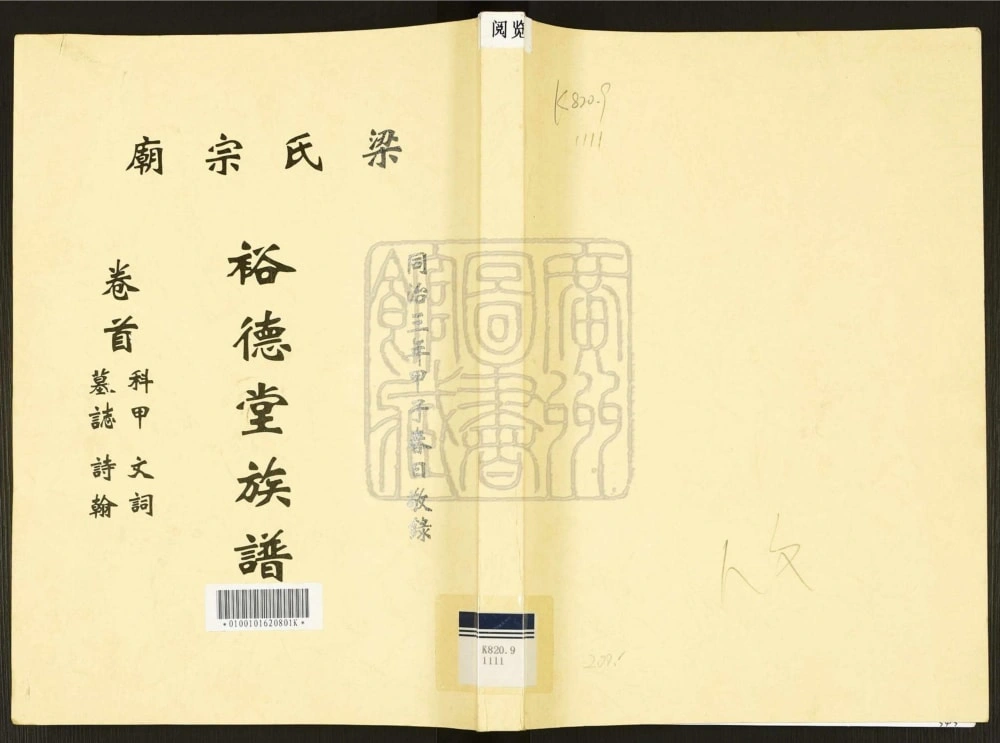 梁氏宗廟
同治三年甲子春日敬錄
裕德堂族譜
卷首
科甲 文詞
墓誌 詩翰
*0100101620801K*
阅览
K820.9
1111
K820.9
1111
廣州
圖書
館藏
人文